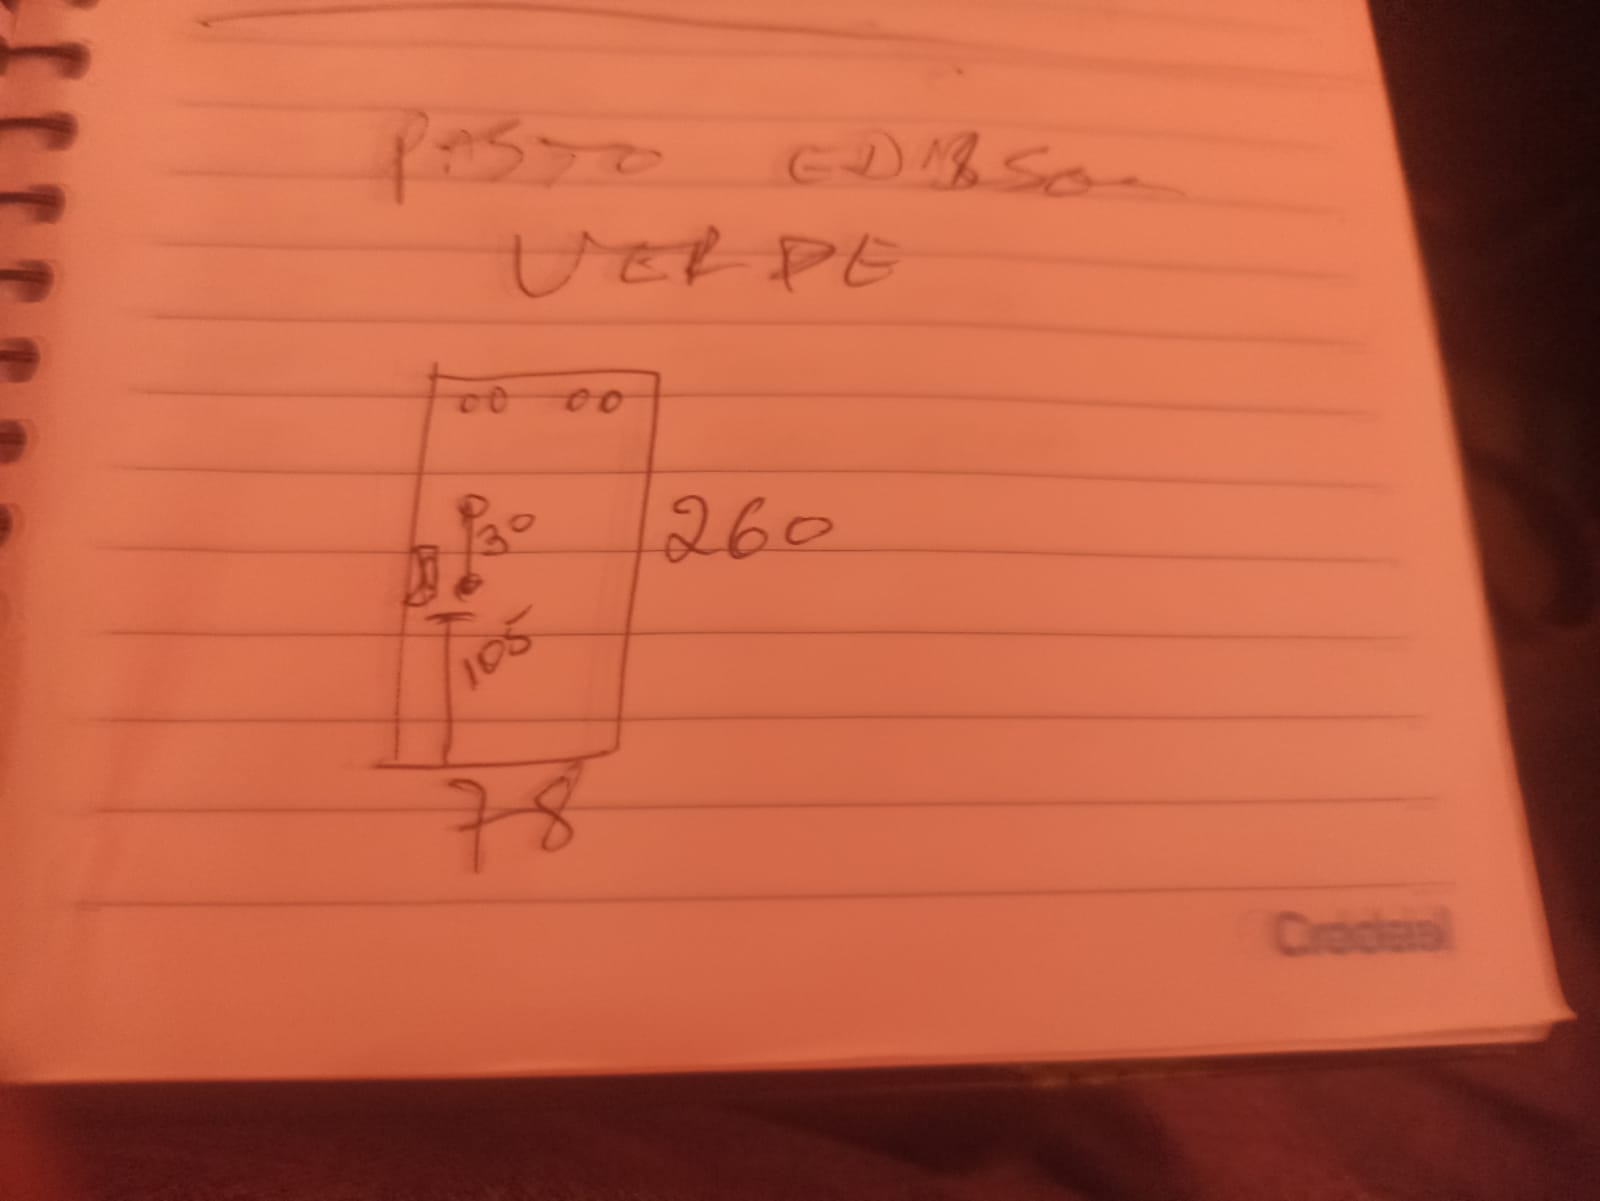 PASTO
VERDE
30
260
105
78
Credeal